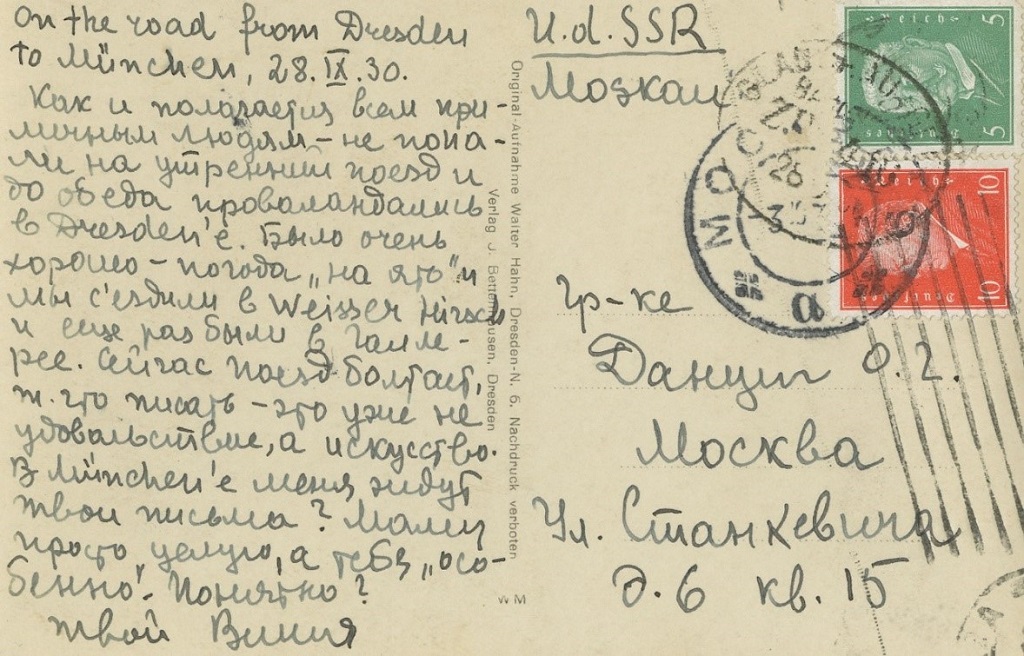 On the road from Dresden
to München, 28.IX.30.
Как и полагается всем при-
личным людям – не попа-
ли на утренний поезд и
до обеда проваландались
в Dresden'е. Было очень
хорошо – погода „на ять" и
мы с'ездили в Weisser Hirsch
и еще раз были в Галле-
рее. Сейчас поезд болтает,
т. что писать – это уже не
удовольствие, а искусство.
В München'е меня ждут
твои письма? Маму
просто целую, а тебя „осо-
бенно". Понятно?
твой Виши
Original-Aufnahme Walter Hahn, Dresden-N. 6, Nachdruck verboten
Verlag J. Bettenhausen, Dresden
WM
U.d.SSR
Москаи
Гр-ке
Данциг О. Г.
Москва
Ул. Станкевича
д. 6 кв. 15
Reich
5
5
Deutsches
Reich
10
10
28
МОС